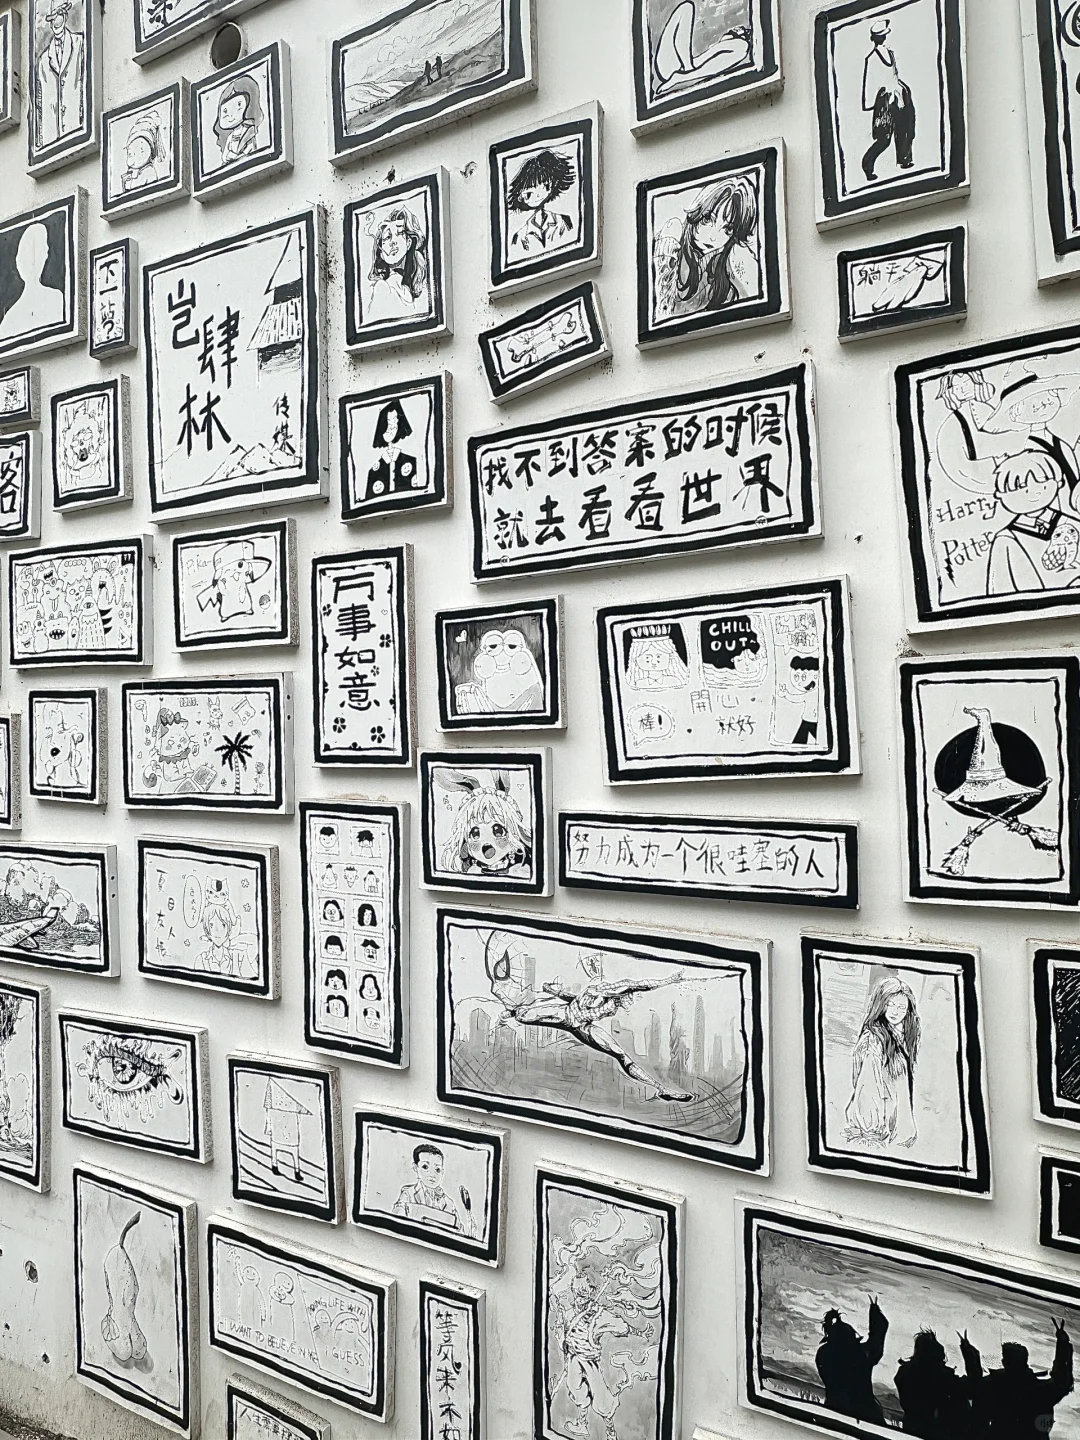 下一站
岂肆林
传媒
躺平
客
找不到答案的时候
就去看看世界
Harry
Potter
Pika
万事如意
CHILL
OUT
開心
就好
棒!
努力成为一个很哇塞的人
夏目友人帳
I WANT TO BELIEVE IN
LIFE WITH
I GUESS
等风来不如